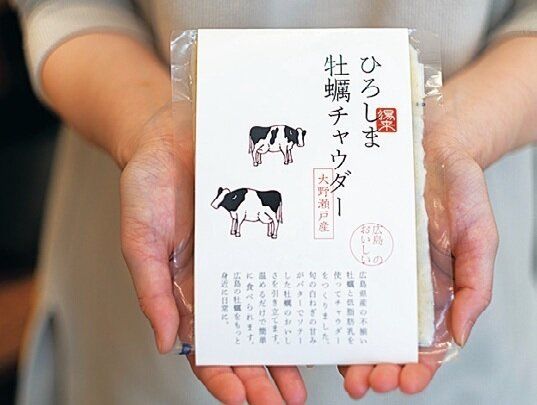 ひろしま
牡蠣チャウダー
大野瀬戸産
広島の
おいしい
広島県産の不揃い
牡蠣と低脂肪乳を
使ってチャウダー
をつくりました。
旬の白ねぎの甘み
がバターでソテー
した牡蠣のおいし
さを引き立てます。
温めるだけで簡単
に食べられます。
広島の牡蠣をもっと
身近に日常に。